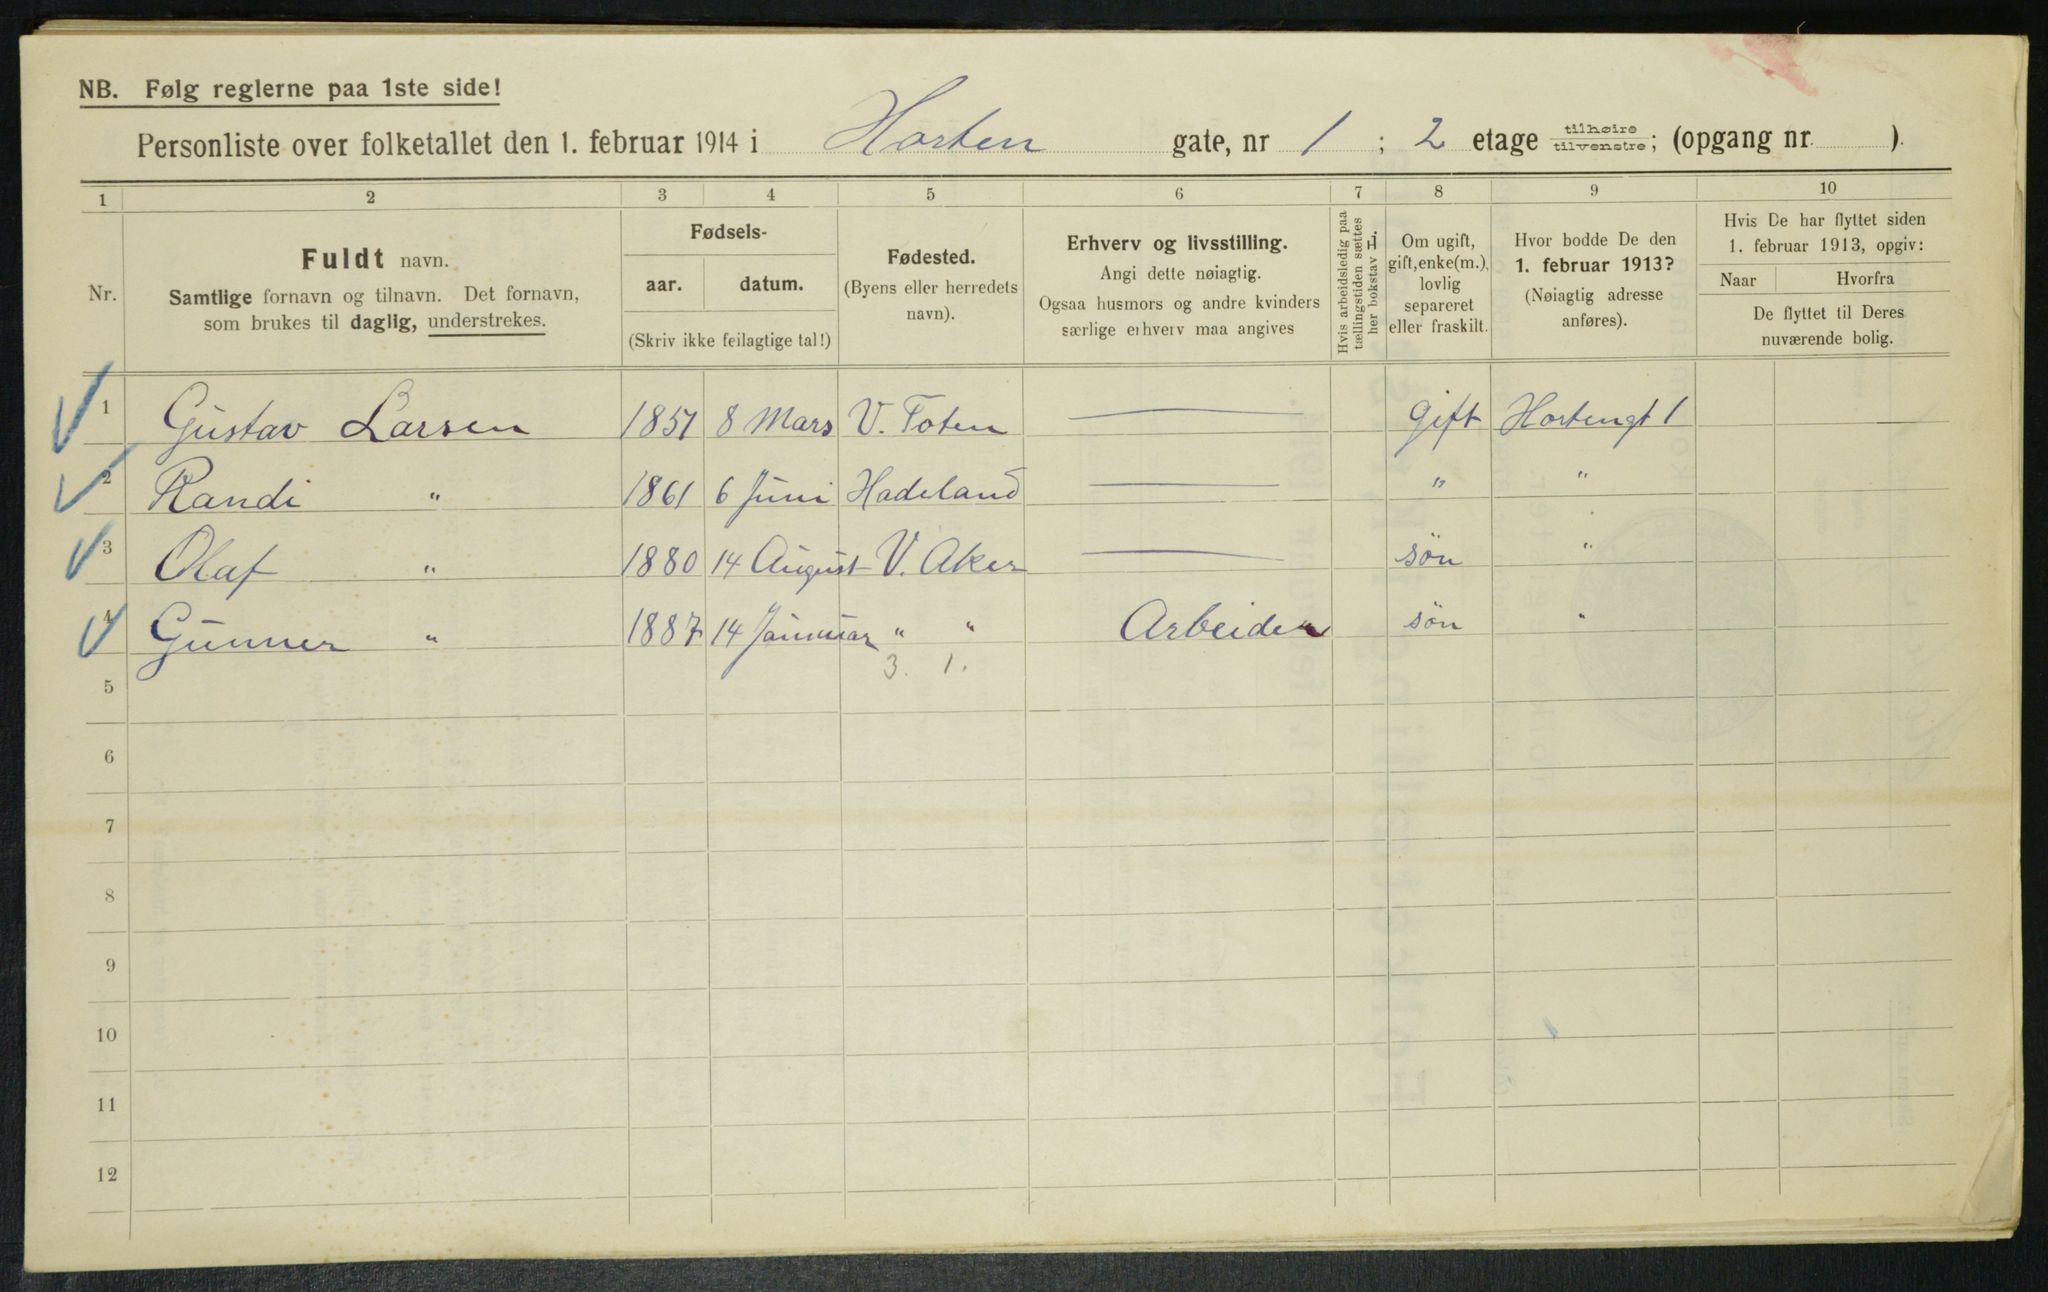 NB. Følg reglerne paa 1ste side!
Personliste over folketallet den 1. februar 1914 i Horten gate, nr 1 ; 2 etage tilhøire tilvenstre; (opgang nr. ).
1 2 3 4 5 6 7 8 9 10
Nr.
Fuldt navn.
Samtlige fornavn og tilnavn. Det fornavn,
som brukes til daglig, understrekes.
Fødsels-
aar. datum.
(Skriv ikke feilagtige tal!)
Fødested.
(Byens eller herredets
navn).
Erhverv og livsstilling.
Angi dette nøiagtig.
Ogsaa husmors og andre kvinders
særlige erhverv maa angives
Hvis arbeidsledig paa
tællingstiden sættes
her bokstav H.
Om ugift,
gift, enke(m.),
lovlig
separeret
eller fraskilt.
Hvor bodde De den
1. februar 1913?
(Nøiagtig adresse
anføres).
Hvis De har flyttet siden
1. februar 1913, opgiv:
Naar Hvorfra
De flyttet til Deres
nuværende bolig.
1 Gustav Larsen 1851 8 Mars V. Toten — gift Hortengt 1
2 Randi " 1861 6 Juni Hadeland — " "
3 Olaf " 1880 14 August V. Aker — søn "
4 Gunner " 1887 14 Januar " " Arbeider søn "
3. 1.
5
6
7
8
9
10
11
12